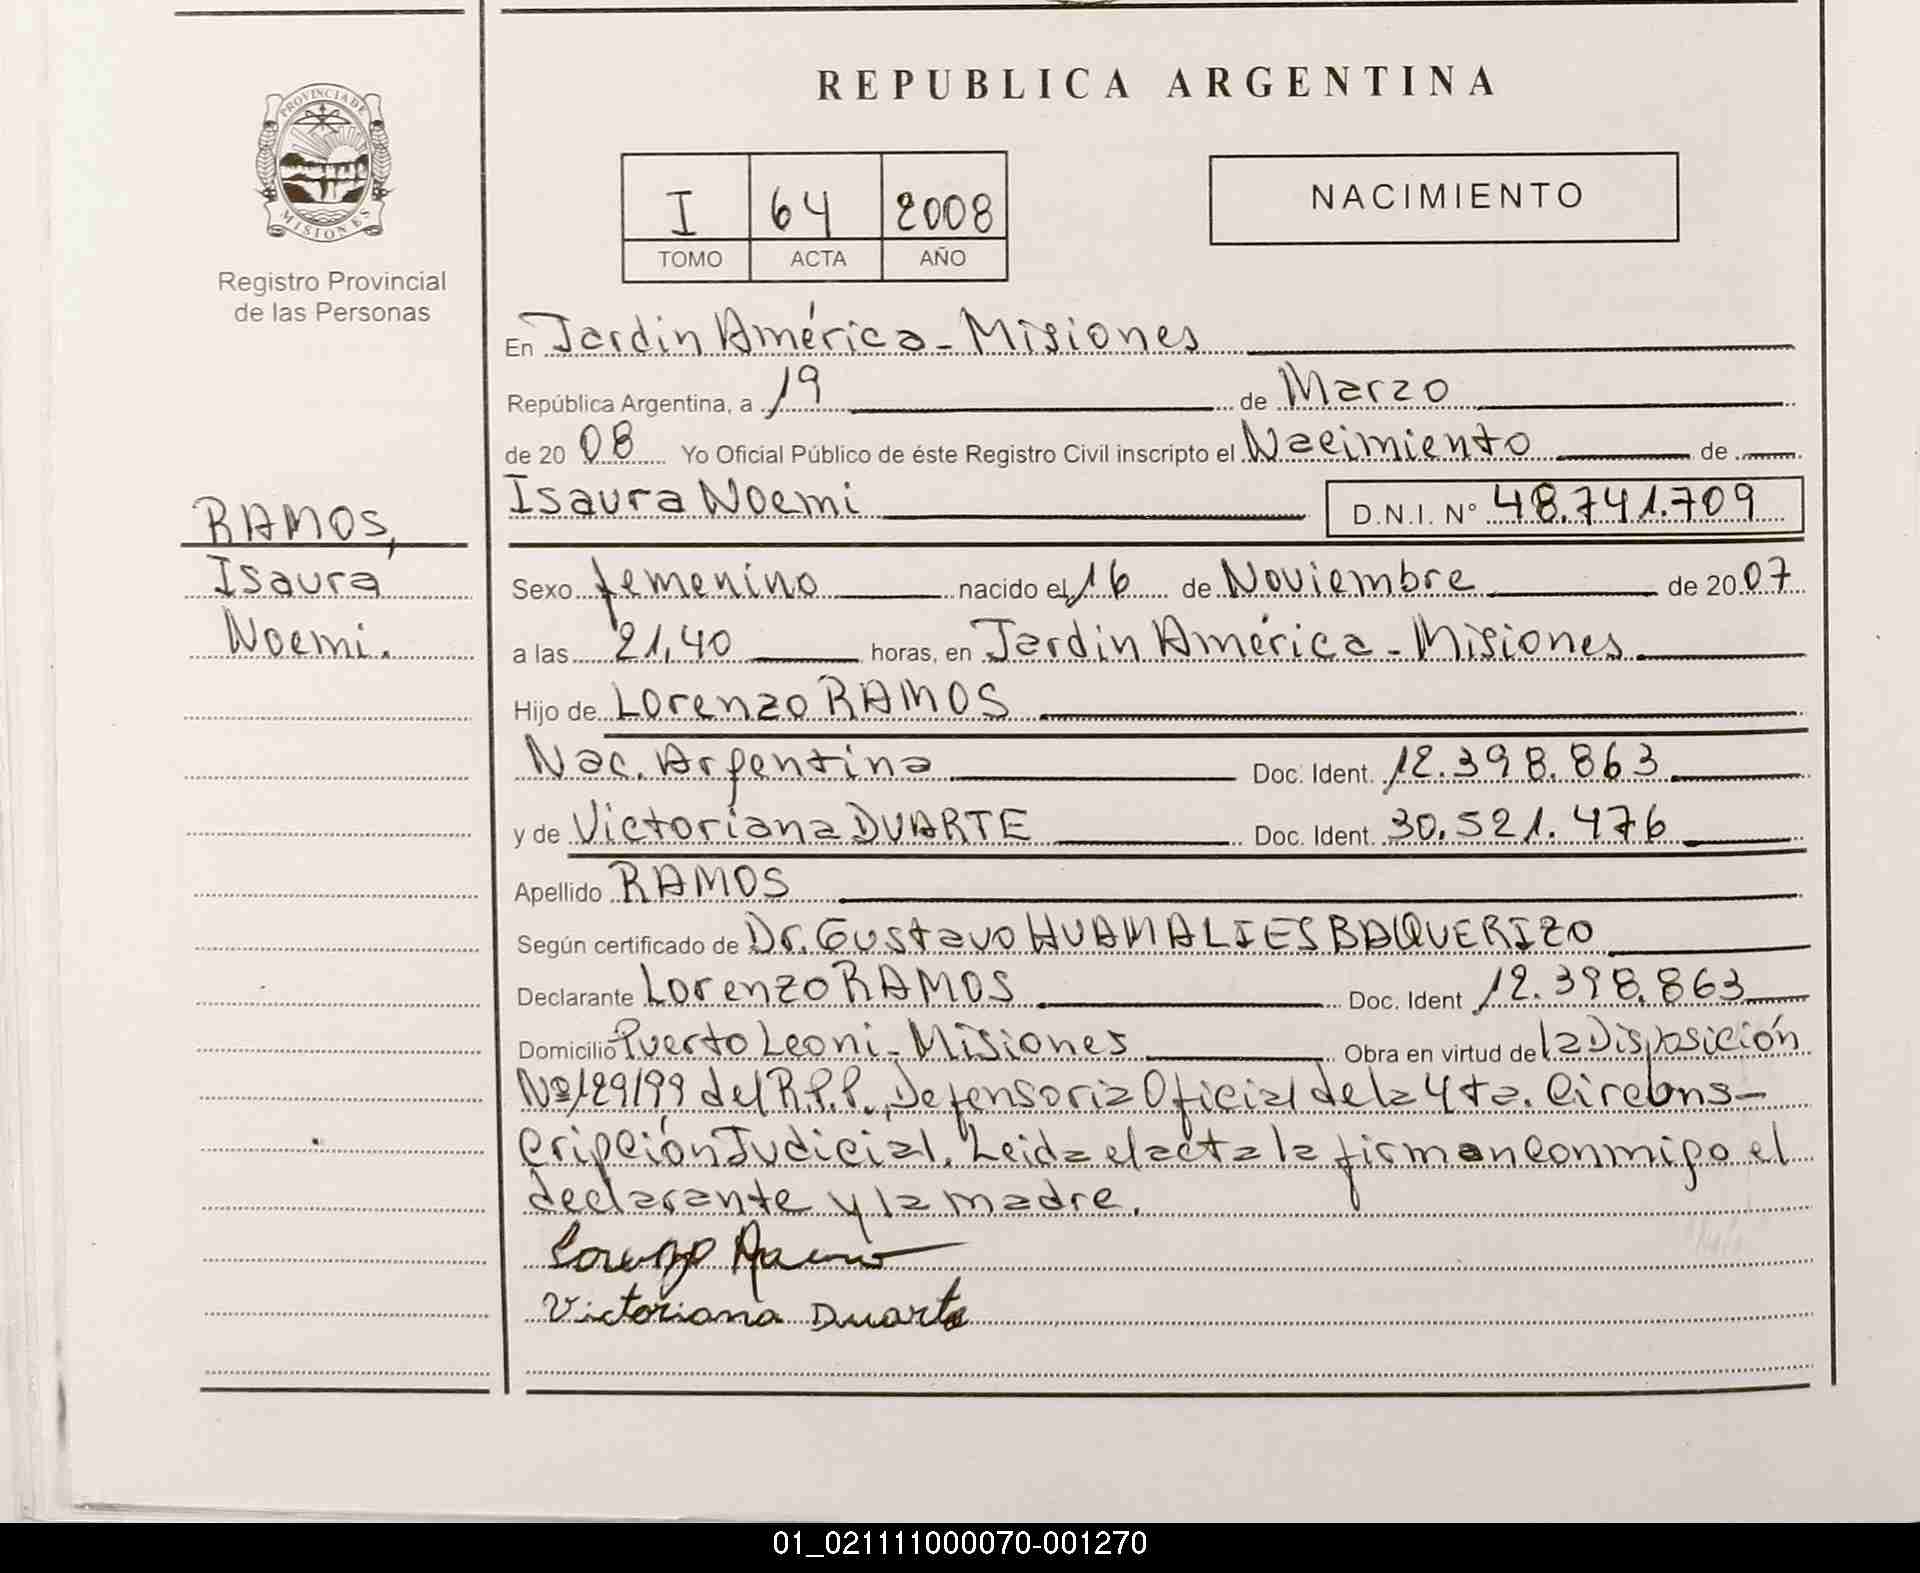 REPUBLICA ARGENTINA
PROVINCIA DE
MISIONES
Registro Provincial
de las Personas
I 64 2008
TOMO ACTA AÑO
NACIMIENTO
En Jardin América - Misiones
República Argentina, a 19 de Marzo
de 20 08 Yo Oficial Público de éste Registro Civil inscripto el Nacimiento de
Isaura Noemi D.N.I. N° 48.741.709
RAMOS,
Isaura
Noemi.
Sexo femenino nacido el 16 de Noviembre de 20 07
a las 21,40 horas, en Jardin América - Misiones.
Hijo de Lorenzo RAMOS
Nac. Argentina Doc. Ident. 12.398.863
y de Victoriana DUARTE Doc. Ident. 30.521.476
Apellido RAMOS
Según certificado de Dr. Gustavo HUAMALIES BAQUERIZO
Declarante Lorenzo RAMOS Doc. Ident 12.398.863
Domicilio Puerto Leoni - Misiones Obra en virtud de la Disposición
Nº 129/99 del R.P.P., Defensoria Oficial de la 4ta. Circuns-
cripción Judicial. Leida el acta la firman conmigo el
declarante y la madre.
Lorenzo Ramos
Victoriana Duarte
01_021111000070-001270